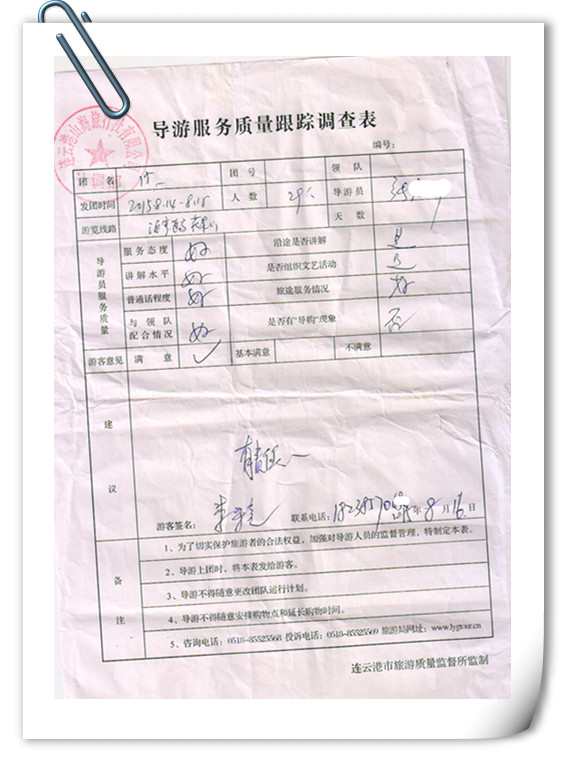 导游服务质量跟踪调查表
编号:
团 名 团 号 领 队
发团时间 2015.8.14-8.15 人 数 导游员
游览线路 天 数
导游员服务质量
服务态度 好 沿途是否讲解 是
讲解水平 好 是否组织文艺活动
普通话程度 好 旅途服务情况 好
与 领 队
配合情况 好 是否有“导购”现象 否
游客意见 满 意 ✓ 基本满意 不满意
建 议
有责任心
游客签名: 联系电话: 年 8 月 16 日
备 注
1、为了切实保护旅游者的合法权益，加强对导游人员的监督管理，特制定本表。
2、导游上团时，将本表发给游客。
3、导游不得随意更改团队运行计划。
4、导游不得随意安排购物点和延长购物时间。
5、咨询电话：0518-85525568 投诉电话：0518-85525569 旅游局网址：www.lygtour.cn
连云港市旅游质量监督所监制